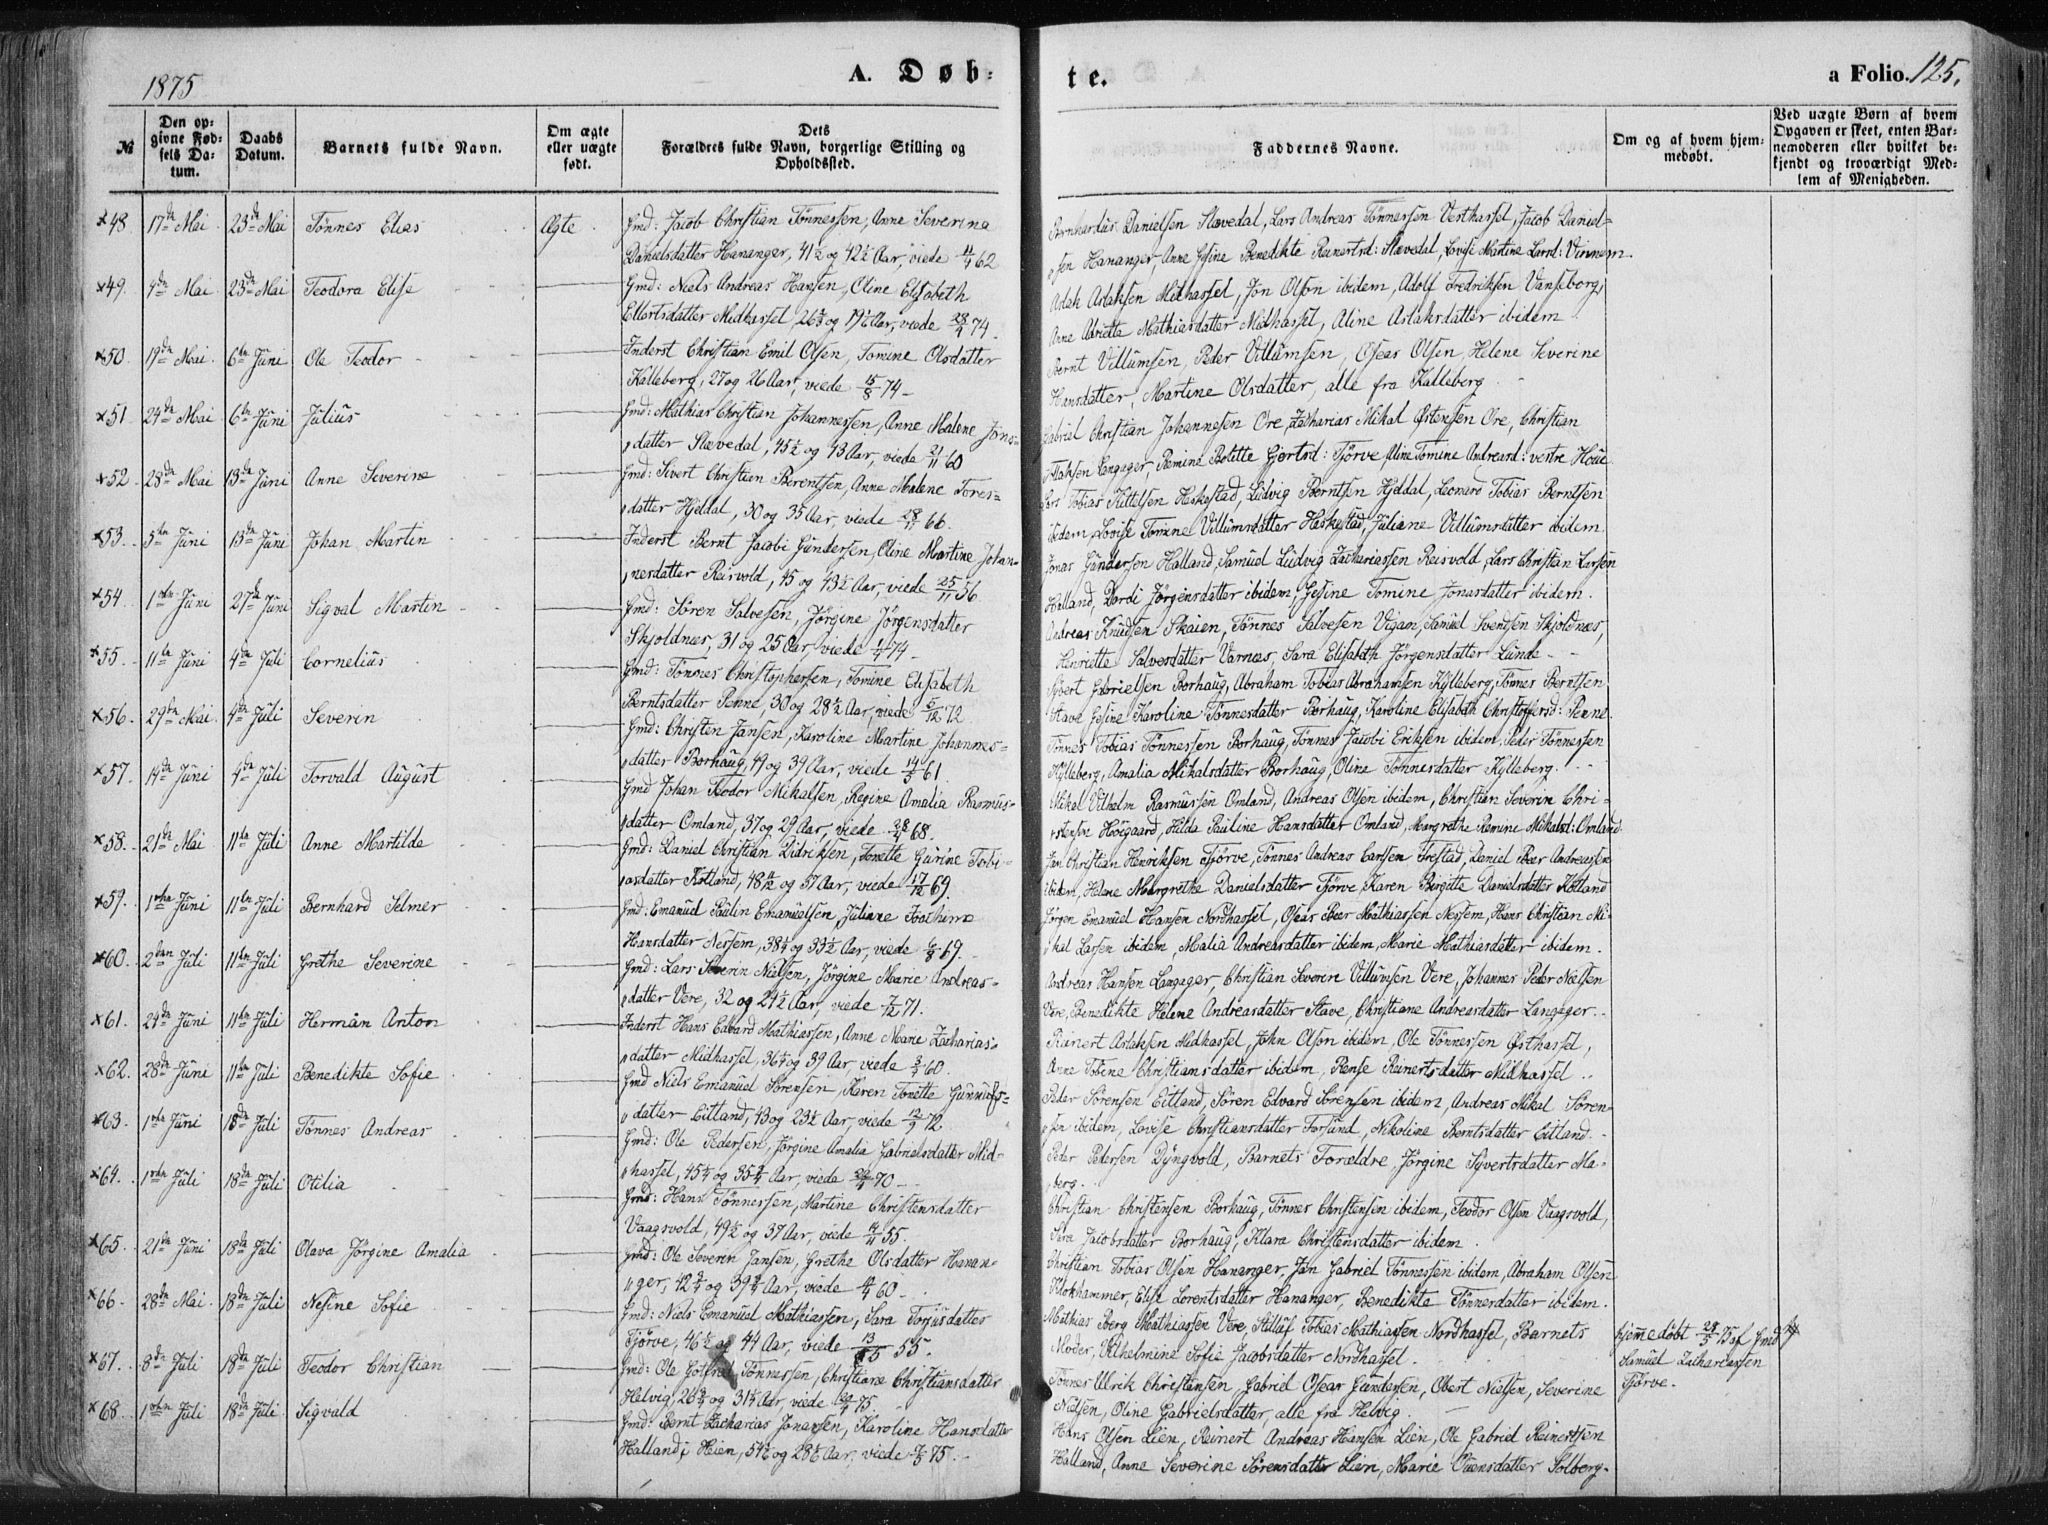 1875
A. Døb-
№
Den op-
givne Fød-
sels Da-
tum.
Daabs
Datum.
Barnets fulde Navn.
Om ægte
eller uægte
født.
Dets
Forældres fulde Navn, borgerlige Stilling og
Opholdssted.
×48. 17de Mai 23de Mai Tønnes Elias Ægte
Gmd: Jacob Christian Tønnessen, Anne Severine
Danielsdatter Hananger, 41½ og 42½ Aar, viede 62
×49. 4de Mai 23de Mai Teodora Elise
Gmd: Niels Andreas Hansen, Oline Elisabeth
Ellertsdatter Midhassel, 26 og 19 Aar, viede 28/4 74.
×50. 19de Mai 6te Juni Ole Teodor
Inderst Christian Emil Olsen, Tomine Olsdatter
Kalleberg, 27 og 26 Aar, viede 15/8 74
×51. 24de Mai 6te Juni Julius
Gmd: Mathias Christian Johannessen, Anne Malene Jons-
datter Slævedal, 45½ og 43 Aar, viede 21/11 60
×52. 28de Mai 13de Juni Anne Severine
Gmd: Sivert Christian Berentsen, Anne Malene Tores-
datter Hjeldal, 30 og 35 Aar, viede 28/11 66.
×53. 5te Juni 13de Juni Johan Martin
Inderst Bernt Jacobi Gundersen, Oline Martine Johan-
nesdatter Reisvold, 45 og 43½ Aar, viede 25/11 56
×54. 1ste Juni 27de Juni Sigval Martin
Gmd: Sören Salvesen, Jörgine Jörgensdatter
Skjoldnæs, 31 og 25 Aar, viede 74
×55. 11te Juni 4de Juli Cornelius
Gmd: Tönnes Christophersen, Tomine Elisabeth
Berntsdatter Penne, 30 og 28½ Aar, viede 5/12 72
×56. 29de Mai 4de Juli Severin
Gmd: Christen Jansen, Karoline Martine Johannes-
datter Borhaug, 49 og 39 Aar, viede 14/5 61.
×57. 14de Juni 4de Juli Torvald August
Gmd Johan Teodor Mikalsen, Regine Amalia Rasmus-
datter Omland, 37 og 29 Aar, viede 68.
×58. 21de Mai 11te Juli Anne Martilde
Gmd: Daniel Christian Didriksen, Tonette Gurine Tobi-
asdatter Kotland, 48 og 37 Aar, viede 17/12 69.
×59. 1ste Juni 11te Juli Bernhard Selmer
Gmd: Emanuel Paulin Emanuelsen, Juliane Joachime
Hansdatter Nessem, 38 og 33½ Aar, viede 6/8 69.
×60. 2den Juli 11te Juli Grethe Severine
Gmd: Lars Severin Nielsen, Jörgine Marie Andreas-
datter Vere, 32 og 24½ Aar, viede 71.
×61. 24de Juni 11te Juli Herman Anton
Inderst Hans Edvard Mathiassen, Anne Marie Zacharias-
datter Midhassel, 36 og 39 Aar, viede 60.
×62. 28de Juni 11te Juli Benedikte Sofie
Gmd Niels Emanuel Sörensen, Karen Tonette Gunnufs-
datter Eitland, 43 og 23½ Aar, viede 72
×63. 1ste Juni 18de Juli Tönnes Andreas
Gmd: Ole Pedersen, Jörgine Amalia Gabrielsdatter Mid-
hassel, 45 og 35 Aar, viede 70
×64. 1ste Juli 18de Juli Otilia
Gmd: Hans Tönnessen, Martine Christensdatter
Vaagsvold, 49½ og 37 Aar, viede 55.
×65. 21de Juni 18de Juli Olava Jörgine Amalia
Gmd: Ole Severin Jansen, Grethe Olsdatter Hanan-
ger, 42 og 39 Aar, viede 60
×66. 28de Mai 18de Juli Nesine Sofie
Gmd: Niels Emanuel Mathiassen, Sara Torjusdatter
Tjörve, 46½ og 44 Aar, viede 55.
×67. 8de Juli 18de Juli Teodor Christian
Gmd: Ole Gotfred Tönnessen, Christiane Christiansdatter
Helvig, 26 og 31 Aar, viede 75.
×68. 1ste Juli 18de Juli Sigvald
Gmd: Bernt Zacharias Jonassen, Karoline Hansdatter
Halland i Heien, 54 og 28 Aar, viede 75.
te.
a Folio. 125.
Faddernes Navne.
Om og af hvem hjem-
medøbt.
Ved uægte Børn af hvem
Opgaven er skeet, enten Bar-
nemoderen eller hvilket be-
kjendt og troværdigt Med-
lem af Menigheden.
Bernhardus Danielsen Slævedal, Lars Andreas Tönnessen Vesthassel, Jacob Daniel-
sen Hananger, Anne Gesine Benedikte Reinertsd: Slævedal, Lovise Martine Larsd: Vinnem.
Aslak Aslaksen Midhassel, Jon Olson ibidem, Adolf Fredriksen Vanseborg,
Anne Abriette Mathiasdatter Midhassel, Aline Aslaksdatter ibidem
Bernt Villumsen, Peder Villumsen, Oscar Olsen, Helene Severine
Hansdatter, Martine Olsdatter, alle fra Kalleberg.
Gabriel Christian Johannesen Ore, Zacharias Mikal Østensen Ore, Christian
Aslaksen Langager, Remine Bolette Gjertsd: Tjörve, Aline Tomine Andreasd: vestre Houe
Lars Tobias Kittelsen Heskestad, Ludvig Berntsen Hjeldal, Leonard Tobias Berntsen
ibidem, Lovise Tomine Villumsdatter Heskestad, Juliane Villumsdatter ibidem
Jonas Gundersen Halland, Samuel Ludvig Zachariassen Reisvold, Lars Christian Larsen
Halland, Dordi Jörgensdatter ibidem, Gesine Tomine Jonasdatter ibidem.
Andreas Knudsen Skaien, Tönnes Salvesen Vigan, Samuel Svendsen Skjoldnæs,
Henriette Salvesdatter Varnæs, Sara Elisabeth Jörgensdatter Lunde
Syvert Gabrielsen Borhaug, Abraham Tobias Abrahamsen Kylleberg, Tönnes Berntsen
Stave Gesine Karoline Tönnesdatter Borhaug, Karoline Elisabeth Christoffersd: Penne.
Tönnes Tobias Tönnessen Borhaug, Tönnes Jacobi Eriksen ibidem, Peder Tönnessen
Kylleberg, Amalia Mikalsdatter Borhaug, Oline Tönnesdatter Kylleberg.
Mikal Vilhelm Rasmussen Omland, Andreas Olsen ibidem, Christian Severin Chri-
stensen Höigaard, Hilda Pauline Hansdatter Omland, Margrethe Remine Mikalsd: Omland
Jan Christian Henriksen Tjörve, Tönnes Andreas Larssen Frestad, Daniel Beer Andreassen
ibidem, Helene Margrethe Danielsdatter Tjörve, Karen Bergitte Danielsdatter Kotland
Jörgen Emanuel Hansen Nordhassel, Oscar Beer Mathiassen Nessem, Hans Christian Mi-
kal Larsen ibidem, Malia Andreasdatter ibidem, Marie Mathiasdatter ibidem.
Andreas Hansen Langager, Christian Severin Villumsen Vere, Johannes Peder Nielsen
Vere, Benedikte Helene Andreasdatter Stave, Christiane Andreasdatter Langager.
Reinert Aslaksen Midhassel, John Olson ibidem, Ole Tönnessen Østhassel,
Anne Tobine Christiansdatter ibidem, Rense Reinertsdatter Midhassel.
Peder Sörensen Eitland, Sören Edvard Sörensen ibidem, Andreas Mikal Sören-
sen ibidem, Lovise Christiansdatter Forsund, Nikoline Berntsdatter Eitland.
Peder Pedersen Dyngvold, Barnets Forældre, Jörgine Syvertsdatter Ma-
berg.
Christian Christensen Borhaug, Tönnes Christensen ibidem, Teodor Olsen Vaagsvold,
Sara Jacobsdatter Borhaug, Klara Christensdatter ibidem.
Christian Tobias Olsen Hananger, Jan Gabriel Tönnessen ibidem, Abraham Olsen
Klokhammer, Elise Lorentsdatter Hananger, Benedikte Tönnesdatter ibidem.
Mathias Berg Mathiassen Vere, Tobias Mathiassen Nordhassel, Barnets
Moder, Vilhelmine Sofie Jacobsdatter Nordhassel.
hjemmedöbt 28/5 75 af Gmd
Samuel Zachariassen
Tjörve.
Tönnes Ulrik Christensen, Gabriel Oscar Gundersen, Obert Nielsen, Severine
Nielsen, Oline Gabrielsdatter, alle fra Helvig.
Hans Olsen Lien, Reinert Andreas Hansen Lien, Ole Gabriel Reinertsen
Halland, Anne Severine Sörensdatter Lien, Marie Svensdatter Solberg.